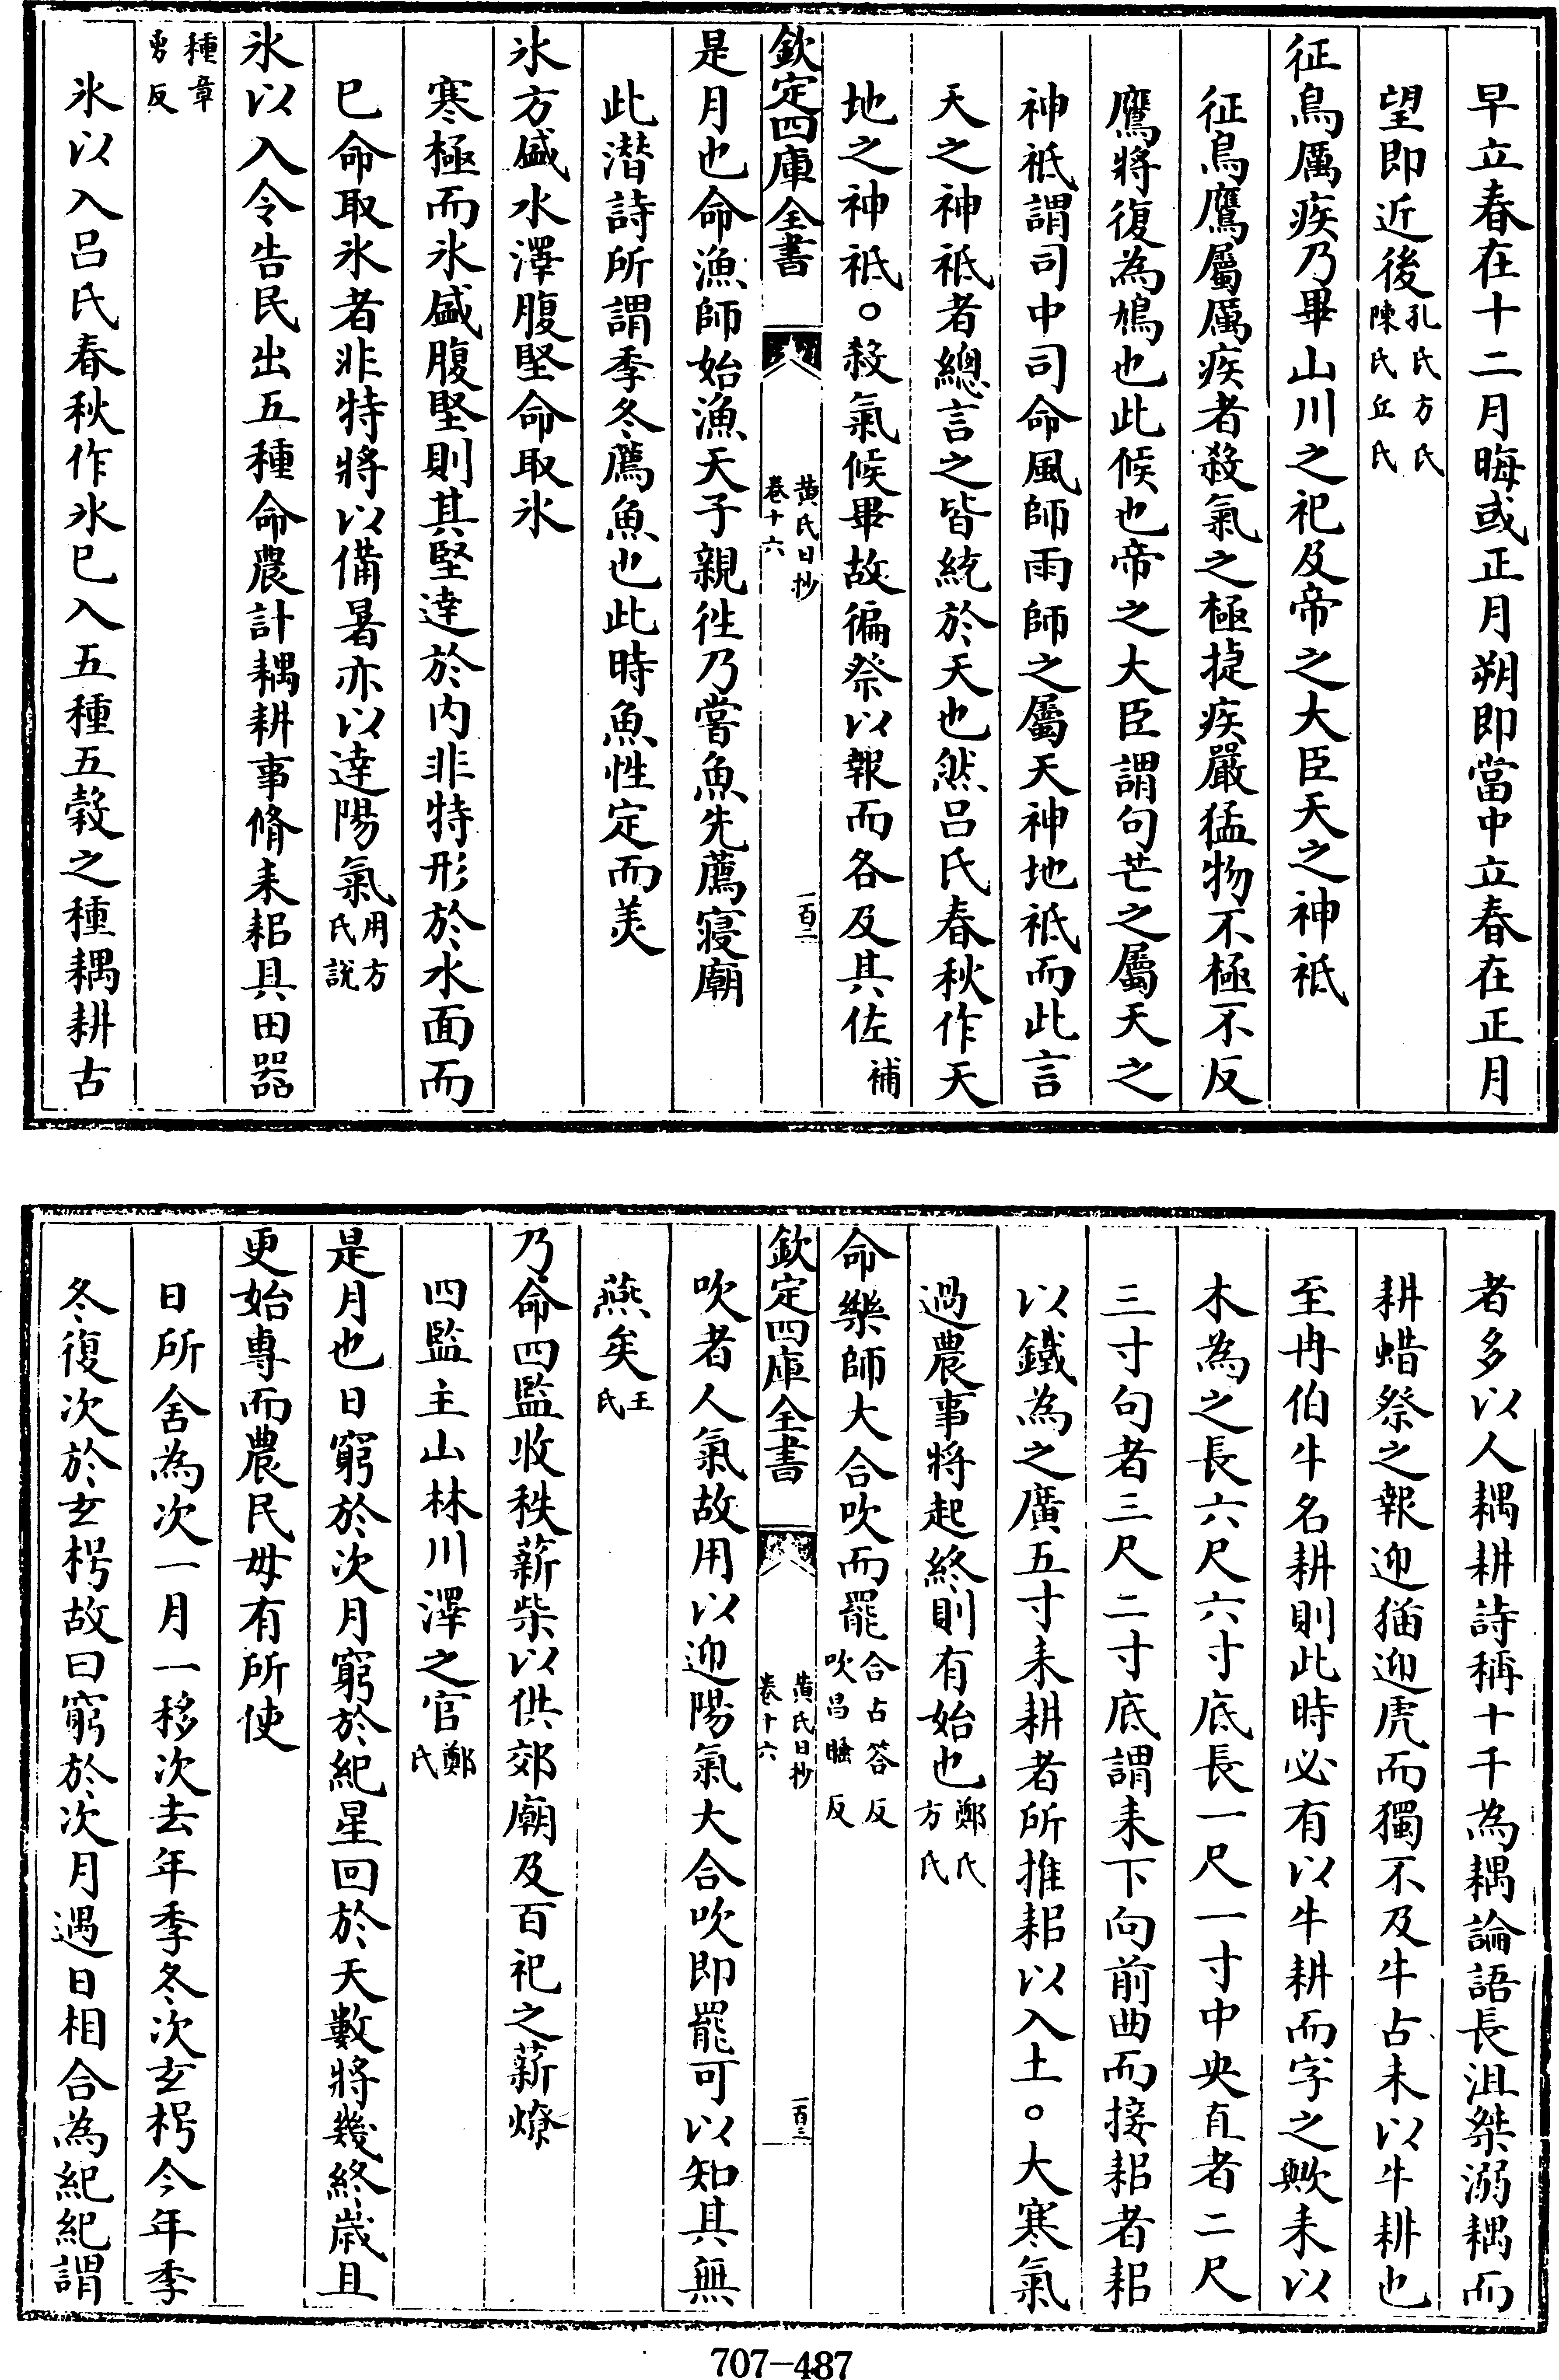 早立春在十二月晦或正月朔即當中立春在正月
望即近後孔氏方氏陳氏丘氏
征鳥厲疾乃畢山川之祀及帝之大臣天之神祇
征鳥鷹屬厲疾者殺氣之極捷疾嚴猛物不極不反
鷹將復為鳩也此候也帝之大臣謂句芒之屬天之
神祇謂司中司命風師雨師之屬天神地祇而此言
天之神祇者總言之皆統於天也然呂氏春秋作天
地之神祇。殺氣候畢故徧祭以報而各及其佐補
欽定四庫全書 黄氏日抄 卷十六 一百二
是月也命漁師始漁天子親徃乃嘗魚先薦寢廟
此潛詩所謂季冬薦魚也此時魚性定而美
氷方盛水澤腹堅命取氷
寒極而氷盛腹堅則其堅達於内非特形於水面而
已命取氷者非特將以備暑亦以達陽氣用方氏說
氷以入令告民出五種命農計耦耕事脩耒耜具田器
種章勇反
氷以入呂氏春秋作氷已入五種五穀之種耦耕古
者多以人耦耕詩稱十千為耦論語長沮桀溺耦而
耕蜡祭之報迎猫迎虎而獨不及牛占未以牛耕也
至冉伯牛名耕則此時必有以牛耕而字之歟耒以
木為之長六尺六寸底長一尺一寸中央直者二尺
三寸句者三尺二寸底謂耒下向前曲而接耜者耜
以鐵為之廣五寸耒耕者所推耜以入土。大寒氣
過農事將起終則有始也鄭氏方氏
命樂師大合吹而罷合占答反吹昌睡反
欽定四庫全書 黄氏日抄 卷十六 一百三
吹者人氣故用以迎陽氣大合吹即罷可以知其無
燕矣王氏
乃命四監收秩薪柴以供郊廟及百祀之薪燎
四監主山林川澤之官鄭氏
是月也日窮於次月窮於紀星回於天數將幾終嵗且
更始專而農民毋有所使
日所舍為次一月一移次去年季冬次玄枵今年季
冬復次於玄枵故曰窮於次月遇日相合為紀紀謂
707-487